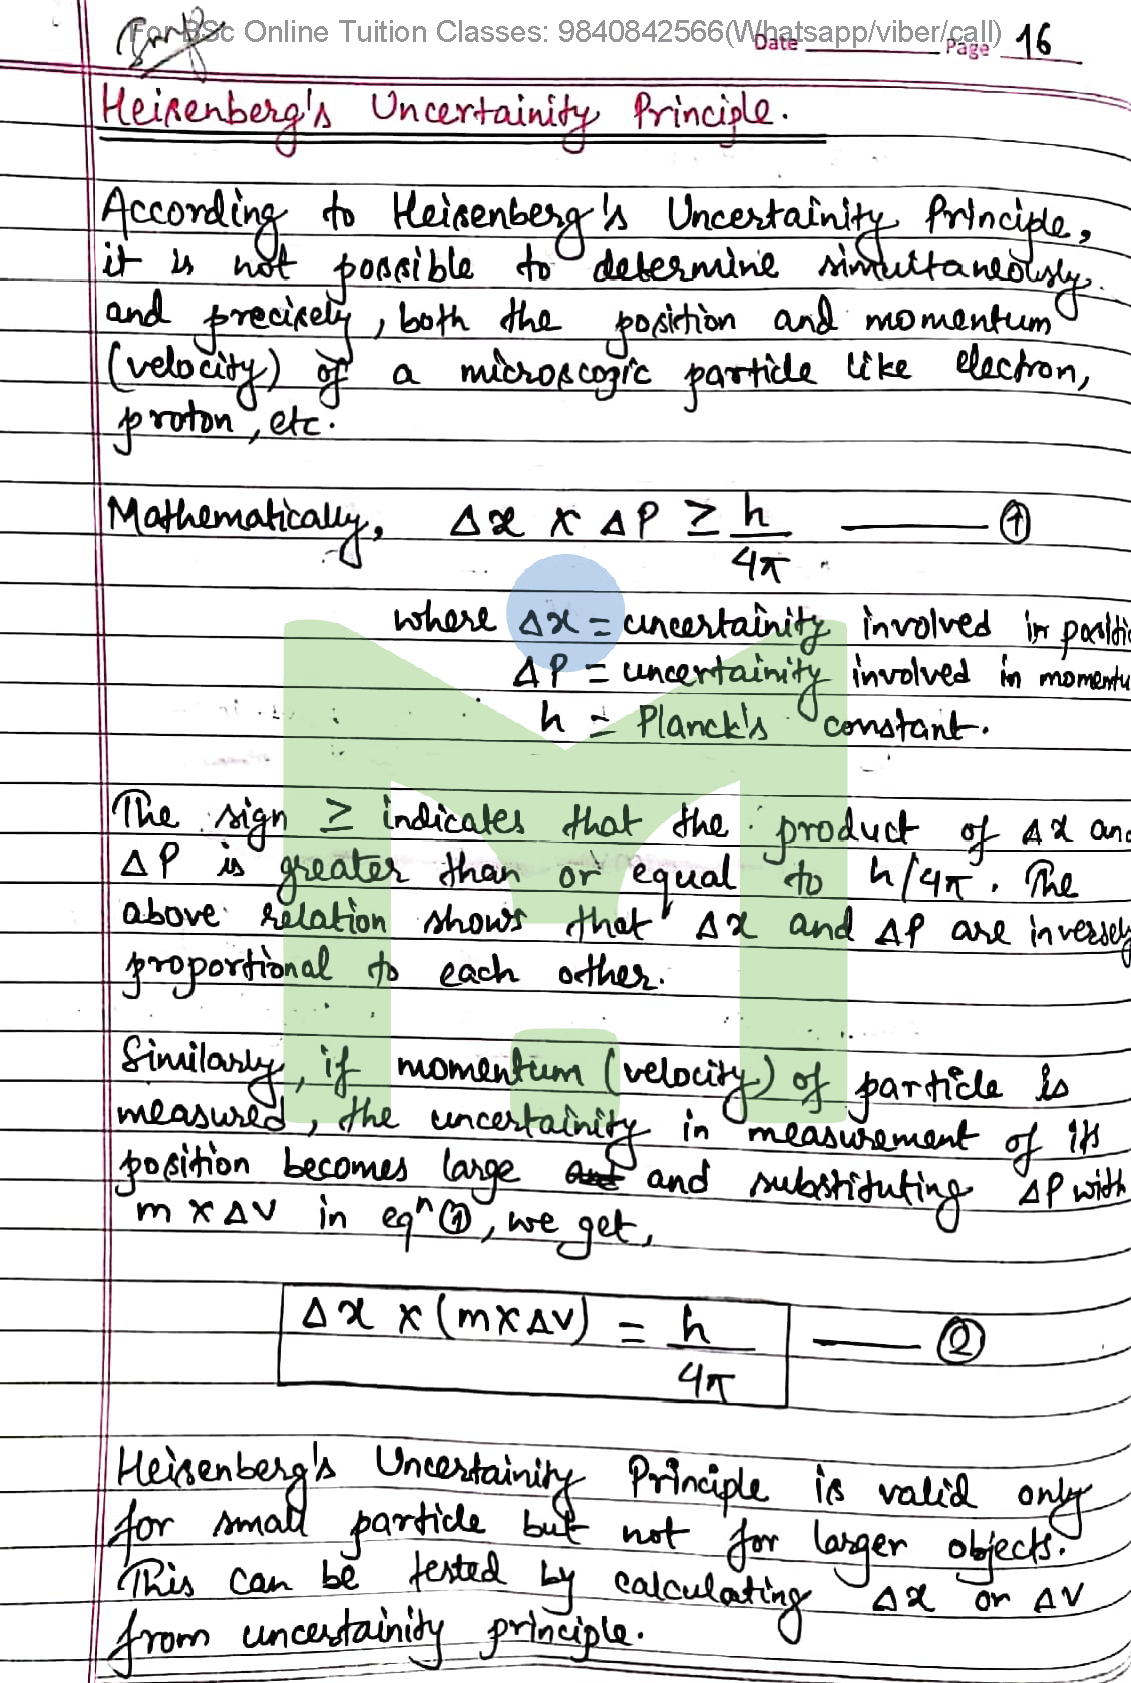 For BSc Online Tuition Classes: 9840842566(Whatsapp/viber/call)
Date Page 16
Heisenberg's Uncertainity Principle.
According to Heisenberg's Uncertainity Principle,
it is not possible to determine simultaneously
and precisely, both the position and momentum
(velocity) of a microscopic particle like electron,
proton, etc.
Mathematically, Δx × ΔP ≥ h/4π ——— ①
where Δx = uncertainity involved in positi
ΔP = uncertainity involved in momentu
h = Planck's constant.
The sign ≥ indicates that the product of Δx and
ΔP is greater than or equal to h/4π. The
above relation shows that Δx and ΔP are inversely
proportional to each other.
Similarly, if momentum (velocity) of particle is
measured, the uncertainity in measurement of its
position becomes large and substituting ΔP with
m × ΔV in eqⁿ ①, we get,
Δx × (m×ΔV) = h/4π ——— ②
Heisenberg's Uncertainity Principle is valid only
for small particle but not for larger objects.
This can be tested by calculating Δx or ΔV
from uncertainity principle.